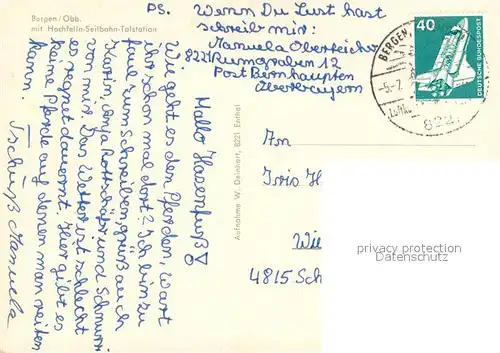 Bergen/Obb.
mit Hochfelln-Seilbahn-Talstation
PS. Wenn Du Lust hast
schreib mir:
Manuela Oberleicher
8221 Rumgraben 12
Post Bernhaupten
Oberbayern
BERGEN,
-5.-7.
822
40
DEUTSCHE BUNDESPOST
Hallo Hasenfuß!
Wie geht es den Pferden, Wart
ihr schon mal dort? Ich bin zu
faul zum Schreiben, grüß auch
Karin, Anja Rottschäfer und Schnurr
von mir. Das Wetter ist schlecht
es regnet dauernd. Hier gibt es
keine Pferde auf denen man reiten
kann.
Tschüß Manuela
Aufnahme W. Deinhart, 8221 Erthal
An
Iris H
Wie
4815 Sch
privacy protection
Datenschutz